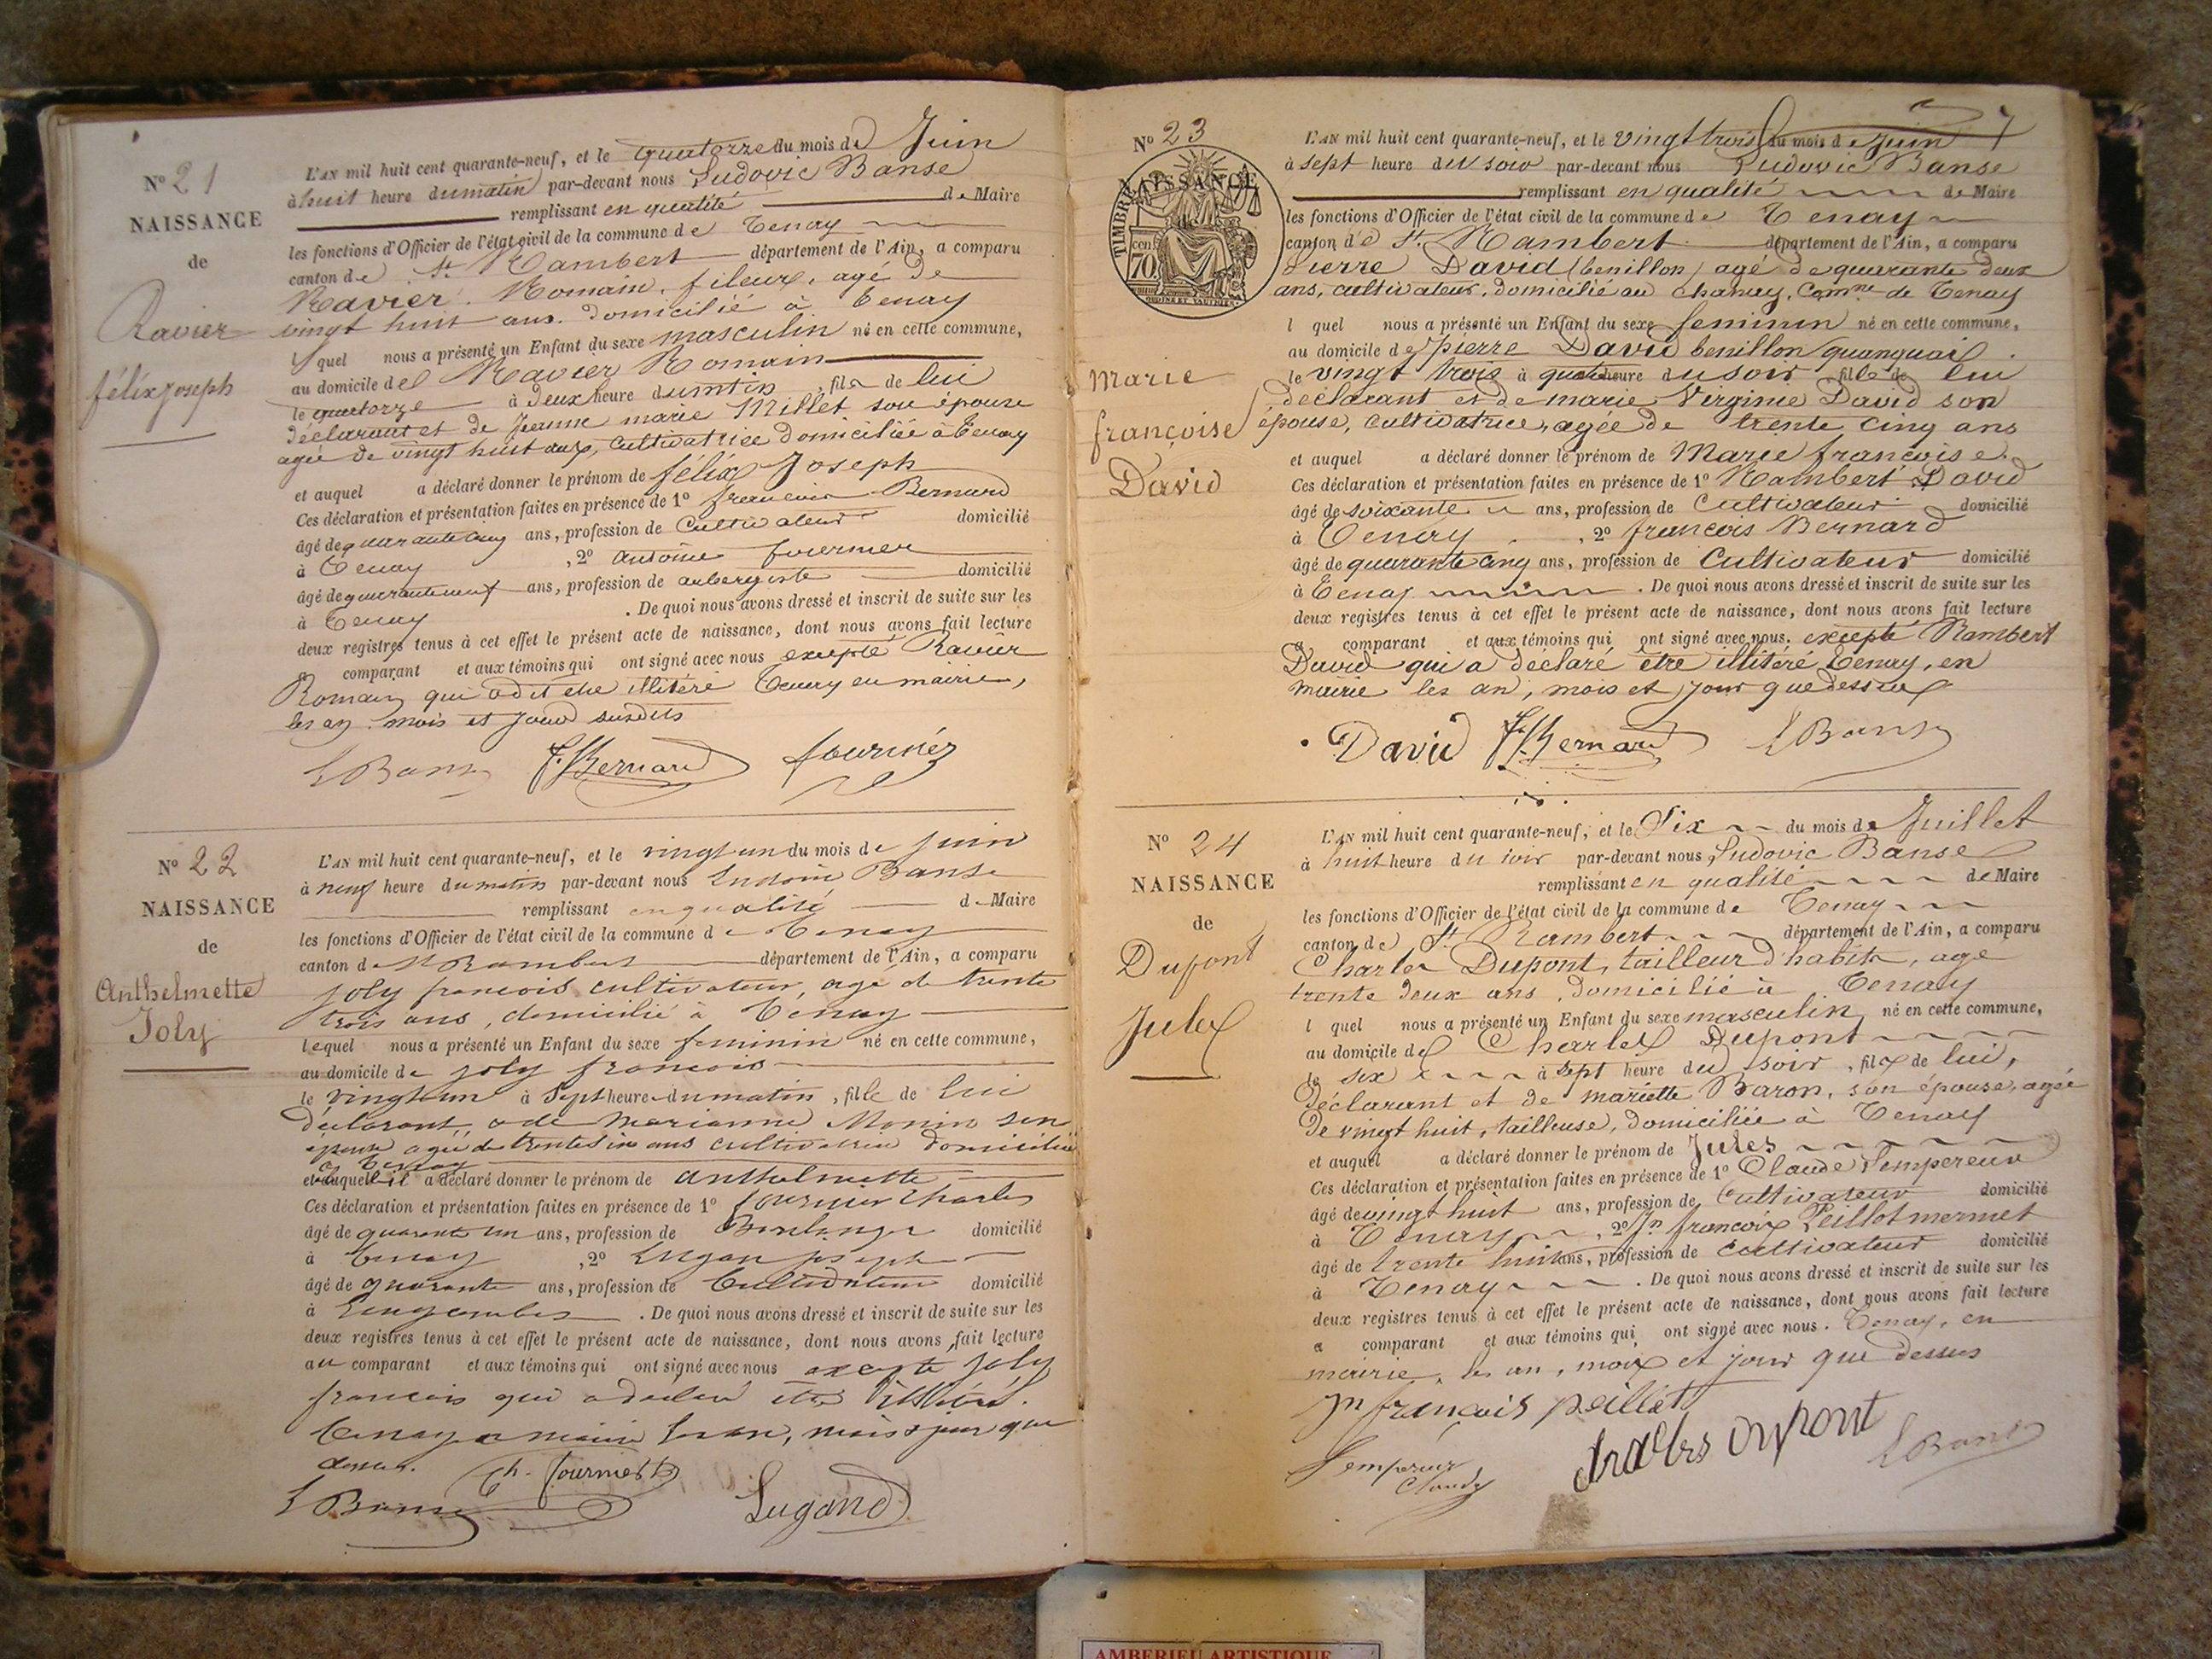 No 21
NAISSANCE
de
Ravier
félix joseph
L'AN mil huit cent quarante-neuf, et le quatorze du mois de Juin
à huit heure du matin par-devant nous Ludovic Banse
remplissant en qualité de Maire
les fonctions d'Officier de l'état civil de la commune de Tenay
canton de St Rambert département de l'Ain, a comparu
Ravier Romain, fileur, agé de
vingt huit ans domicilié à Tenay
l quel nous a présenté un Enfant du sexe masculin né en cette commune,
au domicile de Ravier Romain
le quatorze à deux heure du mtin, fils de lui
déclarant et de Jeanne marie Millet son épouse
agée de vingt huit ans, cultivatrice domiciliée à Tenay
et auquel a déclaré donner le prénom de félix Joseph
Ces déclaration et présentation faites en présence de 1º francois Bernard
âgé de quarante cinq ans, profession de Cultivateur domicilié
à Tenay, 2º antoine fournier
âgé de quarante neuf ans, profession de aubergiste domicilié
à Tenay. De quoi nous avons dressé et inscrit de suite sur les
deux registres tenus à cet effet le présent acte de naissance, dont nous avons fait lecture
comparant et aux témoins qui ont signé avec nous excepté Ravier
Romain qui a dit etre illitéré Tenay en mairie,
les an mois et jour susdits
L Banse F. Bernard fournier
No 22
NAISSANCE
de
Anthelmette
Joly
L'AN mil huit cent quarante-neuf, et le vingt un du mois de juin
à neuf heure du matin par-devant nous Ludovic Banse
remplissant en qualité de Maire
les fonctions d'Officier de l'état civil de la commune de Tenay
canton de St Rambert département de l'Ain, a comparu
joly francois cultivateur, agé de trente
trois ans, domicilié à Tenay
lequel nous a présenté un Enfant du sexe feminin né en cette commune,
au domicile de joly francois
le vingt un à Sept heure du matin, fille de lui
déclarant et de Marianne Monin son
épouse agée de trente six ans cultivatrice domiciliée
a Tenay
et auquel il a déclaré donner le prénom de anthelmette
Ces déclaration et présentation faites en présence de 1º fournier Charles
âgé de quarante un ans, profession de Boulanger domicilié
à Tenay, 2º Lugan joseph
âgé de quarante ans, profession de Cultivateur domicilié
à Longecombe. De quoi nous avons dressé et inscrit de suite sur les
deux registres tenus à cet effet le présent acte de naissance, dont nous avons fait lecture
au comparant et aux témoins qui ont signé avec nous excepté joly
francois qui a déclaré être illitéré.
Tenay en mairie les an, mois & jour que
dessus.
Ch. fournier
L Banse Lugand
7
No 23
NAISSANCE
de
TIMBRE
cen
70
Marie
françoise
David
L'AN mil huit cent quarante-neuf, et le vingt trois du mois de Juin
à sept heure du soir par-devant nous Ludovic Banse
remplissant en qualité de Maire
les fonctions d'Officier de l'état civil de la commune de Tenay
canton de St Rambert département de l'Ain, a comparu
Pierre David (benillon) agé de quarante deux
ans, cultivateur, domicilié au chanay, Comne de Tenay
l quel nous a présenté un Enfant du sexe feminin né en cette commune,
au domicile de pierre David benillon
le vingt trois à quatre heure du soir fille de lui
déclarant et de marie Virginie David son
épouse, cultivatrice, agée de trente cinq ans
et auquel a déclaré donner le prénom de Marie françoise.
Ces déclaration et présentation faites en présence de 1º Rambert David
âgé de soixante ans, profession de Cultivateur domicilié
à Tenay, 2º francois Bernard
âgé de quarante cinq ans, profession de Cultivateur domicilié
à Tenay. De quoi nous avons dressé et inscrit de suite sur les
deux registres tenus à cet effet le présent acte de naissance, dont nous avons fait lecture
a comparant et aux témoins qui ont signé avec nous. excepté Rambert
David qui a déclaré être illitéré Tenay, en
mairie les an, mois et jour que dessus
David F. Bernard L Banse
No 24
NAISSANCE
de
Dupont
Jules
L'AN mil huit cent quarante-neuf, et le Six du mois de Juillet
à huit heure du soir par-devant nous, Ludovic Banse
remplissant en qualité de Maire
les fonctions d'Officier de l'état civil de la commune de Tenay
canton de St Rambert département de l'Ain, a comparu
Charles Dupont, tailleur d'habits, agé
trente deux ans, domicilié à Tenay
l quel nous a présenté un Enfant du sexe masculin né en cette commune,
au domicile de Charles Dupont
le six à sept heure du soir, fils de lui,
déclarant et de mariette Baron, son épouse, agée
de vingt huit, tailleuse, domiciliée à Tenay
et auquel a déclaré donner le prénom de Jules
Ces déclaration et présentation faites en présence de 1º Claude Lempereur
âgé de vingt huit ans, profession de Cultivateur domicilié
à Tenay, 2º Jn françois Peillot mermet
âgé de trente huit ans, profession de cultivateur domicilié
à Tenay. De quoi nous avons dressé et inscrit de suite sur les
deux registres tenus à cet effet le présent acte de naissance, dont nous avons fait lecture
a comparant et aux témoins qui ont signé avec nous. Tenay, en
mairie, les an, mois et jour que dessus
jn françois peillot
Lempereur
Claude
charles dupont
L Banse
AMBERIEU ARTISTIQUE